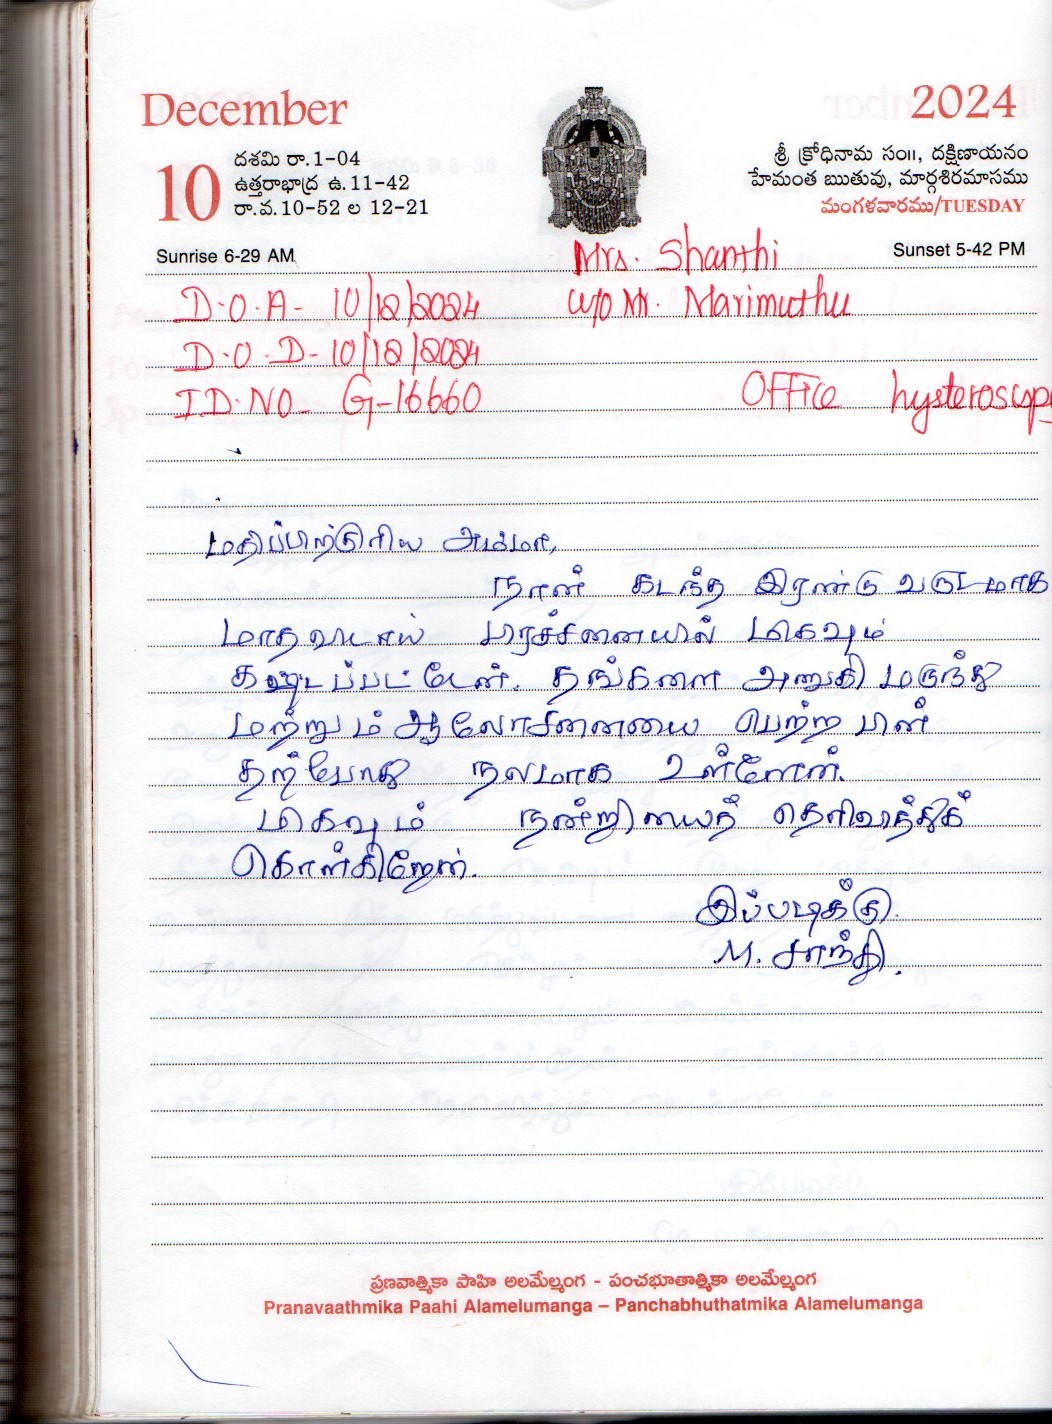 December
2024
10
దశమి రా.1-04
ఉత్తరాభాద్ర ఉ.11-42
రా.వ.10-52 ల 12-21
శ్రీ క్రోధినామ సం॥, దక్షిణాయనం
హేమంత ఋతువు, మార్గశిరమాసము
మంగళవారము/TUESDAY
Sunrise 6-29 AM
Sunset 5-42 PM
Mrs. Shanthi
D.O.A- 10/12/2024 w/o Mr. Marimuthu
D.O.D- 10/12/2024
ID.NO- G-16660 Office hysteroscopy
மதிப்பிற்குரிய அம்மா,
நான் கடந்த இரண்டு வருடமாக
மாதவிடாய் பிரச்சினையில் மிகவும்
கஷ்டப்பட்டேன். தங்களை அணுகி மருந்து
மற்றும் ஆலோசினையை பெற்ற பின்
தற்போது நலமாக உள்ளேன்.
மிகவும் நன்றியைத் தெரிவித்துக்
கொள்கிறேன்.
இப்படிக்கு.
M. சாந்தி.
ప్రణవాత్మికా పాహి అలమేల్మంగ - పంచభూతాత్మికా అలమేల్మంగ
Pranavaathmika Paahi Alamelumanga – Panchabhuthatmika Alamelumanga